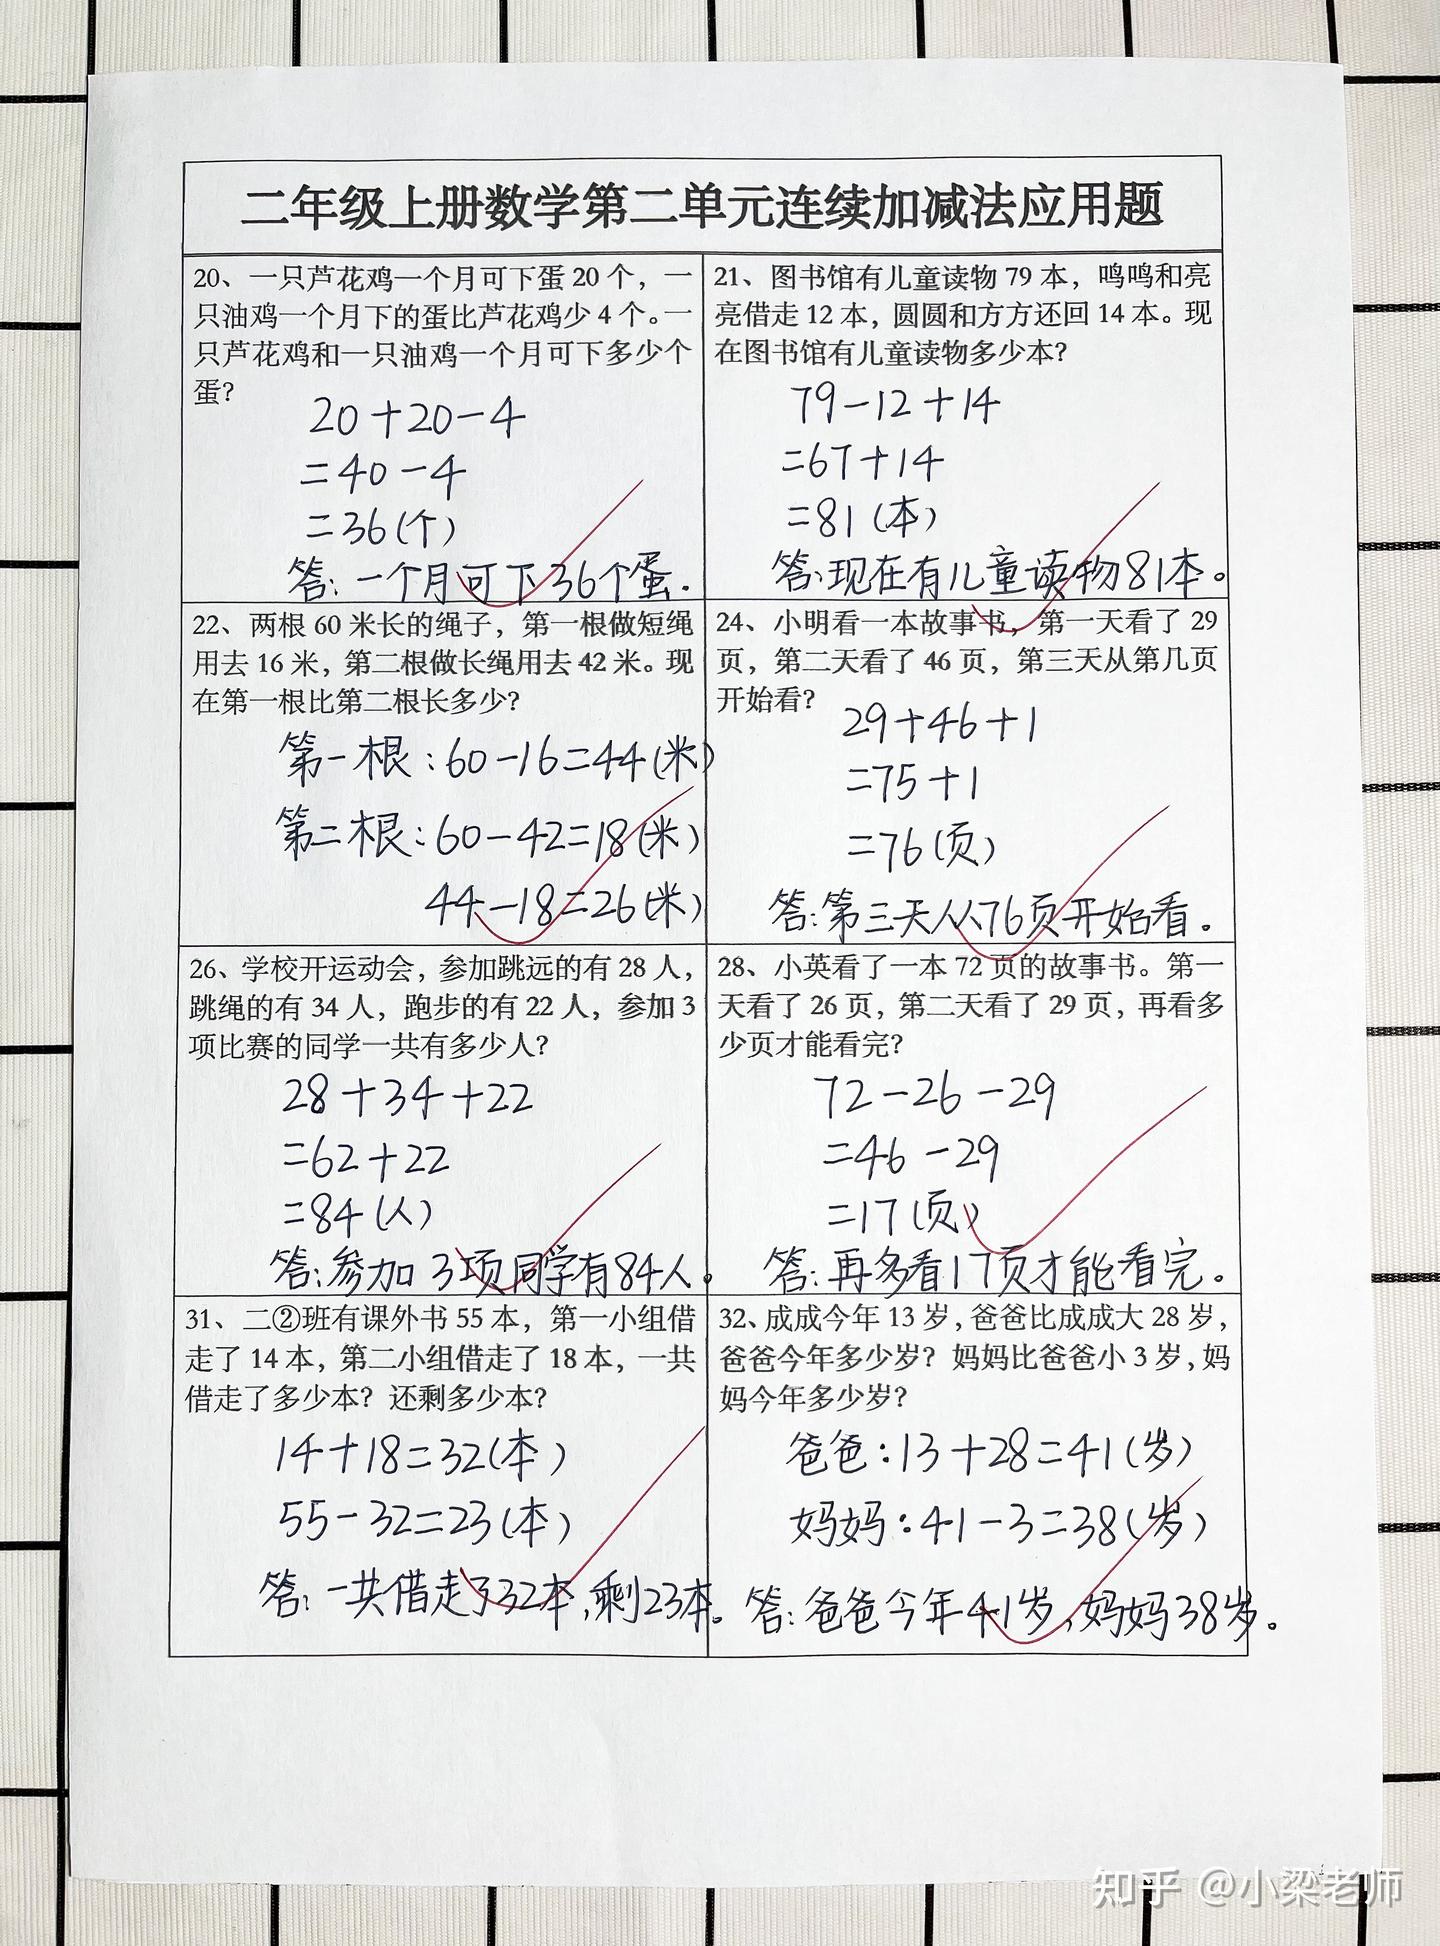 二年级上册数学第二单元连续加减法应用题
20、一只芦花鸡一个月可下蛋 20 个，一
只油鸡一个月下的蛋比芦花鸡少 4 个。一
只芦花鸡和一只油鸡一个月可下多少个
蛋？
20+20-4
=40-4
=36(个)
答：一个月可下36个蛋.
21、图书馆有儿童读物 79 本，鸣鸣和亮
亮借走 12 本，圆圆和方方还回 14 本。现
在图书馆有儿童读物多少本？
79-12+14
=67+14
=81(本)
答：现在有儿童读物81本。
22、两根 60 米长的绳子，第一根做短绳
用去 16 米，第二根做长绳用去 42 米。现
在第一根比第二根长多少？
第一根：60-16=44(米)
第二根：60-42=18(米)
44-18=26(米)
24、小明看一本故事书，第一天看了 29
页，第二天看了 46 页，第三天从第几页
开始看？
29+46+1
=75+1
=76(页)
答：第三天从76页开始看。
26、学校开运动会，参加跳远的有 28 人，
跳绳的有 34 人，跑步的有 22 人，参加 3
项比赛的同学一共有多少人？
28+34+22
=62+22
=84(人)
答：参加3项同学有84人。
28、小英看了一本 72 页的故事书。第一
天看了 26 页，第二天看了 29 页，再看多
少页才能看完？
72-26-29
=46-29
=17(页)
答：再多看17页才能看完。
31、二②班有课外书 55 本，第一小组借
走了 14 本，第二小组借走了 18 本，一共
借走了多少本？还剩多少本？
14+18=32(本)
55-32=23(本)
答：一共借走了32本，剩23本。
32、成成今年 13 岁，爸爸比成成大 28 岁，
爸爸今年多少岁？妈妈比爸爸小 3 岁，妈
妈今年多少岁？
爸爸：13+28=41(岁)
妈妈：41-3=38(岁)
答：爸爸今年41岁，妈妈38岁。
知乎 @小梁老师